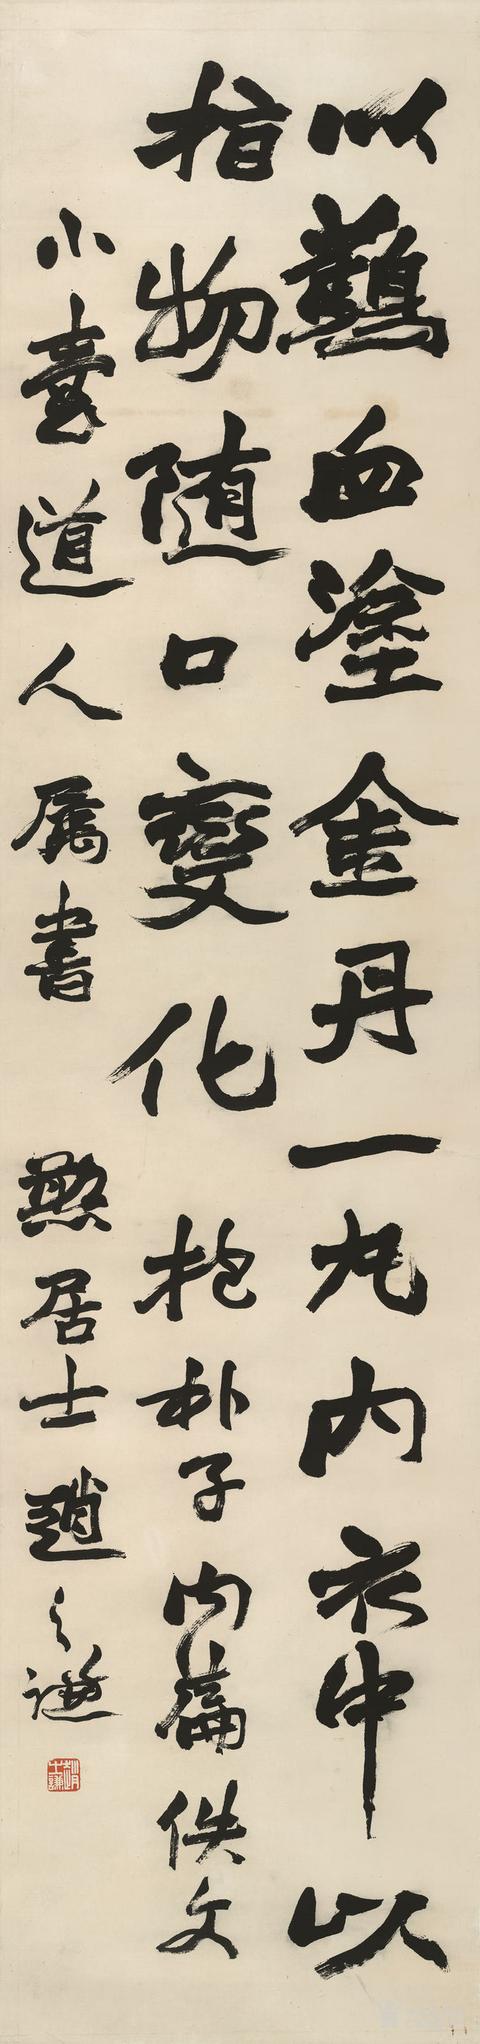 以鸛血塗金丹一丸內衣中以
指物随口變化 抱朴子內篇佚文
小壺道人屬書 憨居士趙之謙